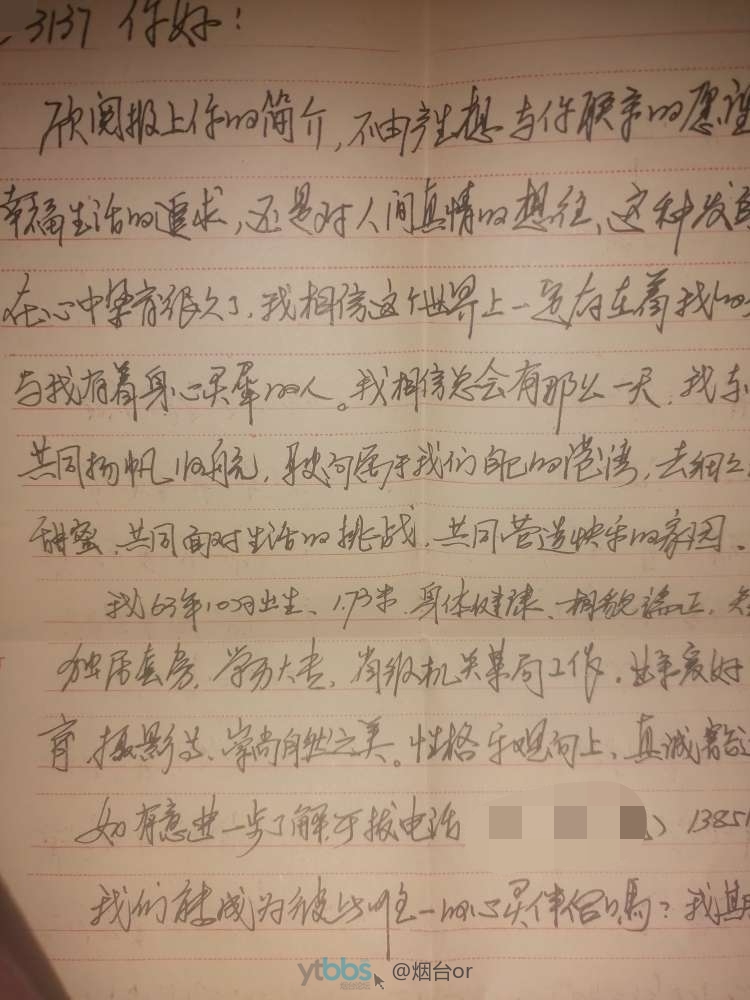 3137 你好！
欣阅报上你的简介，不由产生想与你联亲的愿望
幸福生活的追求，还是对人间真情的想往，这种发自
在心中孕育很久了，我相信这个世界上一定存在着我的
与我有着身心灵犀的人。我相信总会有那么一天，我
共同扬帆归航，驶向属于我们自己的港湾，去细
甜蜜，共同面对生活的挑战，共同营造快乐的家园。
我63年10月出生、1.73米 身体健康、相貌端正，
独居套房，学历大专，省级机关某局工作。业余爱好
育、摄影等、崇尚自然之美。性格乐观向上、真诚豁达
如有意进一步了解可拔电话 1385
我们能成为彼此唯一的心灵伴侣吗？我期
ytbbs @烟台or